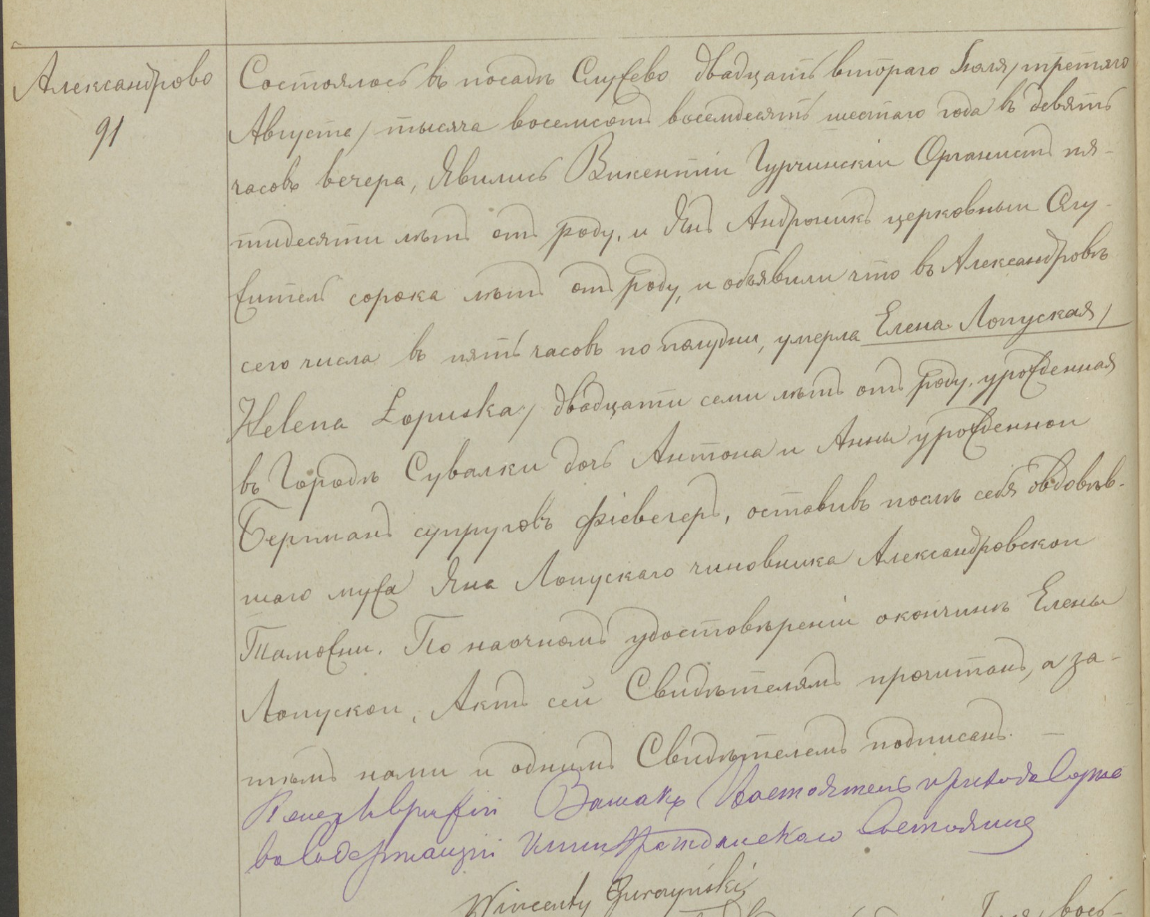 Александрово
91
Состоялось въ посадѣ Служево двадцать втораго Іюля /третяго
Августа/ тысяча восемсотъ восемдесятъ шестаго года въ девять
часовъ вечера, Явились Викентій Гурчинскіи Органистъ пя-
тидесяти лѣтъ отъ роду, и Янъ Андрошкъ церковныи Слу-
житель сорока лѣтъ отъ роду, и объявили что въ Александровѣ
сего числа въ пять часовъ по полудни, умерла Елена Лопуская /
Helena Łopuska/ двадцати семи лѣтъ отъ роду, урожденная
въ Городѣ Сувалки дочь Антона и Анны урожденнои
Берманъ супруговъ Фіевегеръ, оставивъ послѣ себя овдовѣв-
шаго мужа Яна Лопускаго чиновника Александровскои
Таможни. По наочномъ удостовѣреніи окончинѣ Елены
Лопускои, Актъ сей Свидѣтелямъ прочитанъ, а за-
тѣмъ нами и однимъ Свидѣтелемъ подписанъ. —
Настоятель прихода Служе
во Содержащій Акты Гражданскаго Состоянія
Wincenty Gurczyński